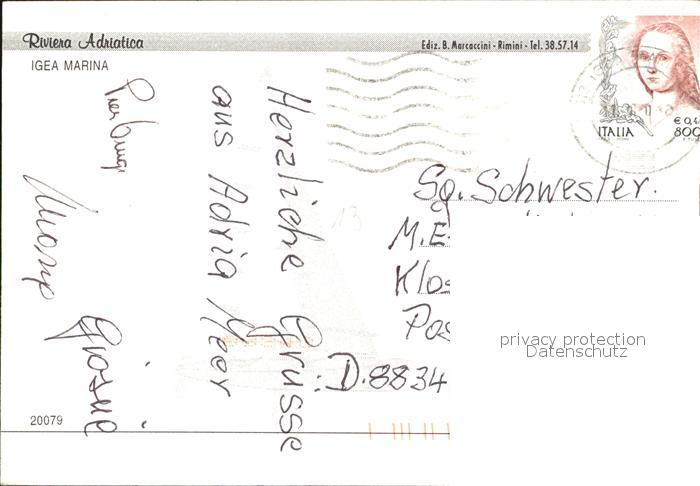 Riviera Adriatica
Ediz. B. Marcaccini - Rimini - Tel. 38.57.14
IGEA MARINA
ITALIA
€ 0,4
800
Herzliche Grusse
aus Adria Meer
Pierluigi
Giosuè
Sg. Schwester.
M.E
Klos
Pos
D.8834
privacy protection
Datenschutz
20079